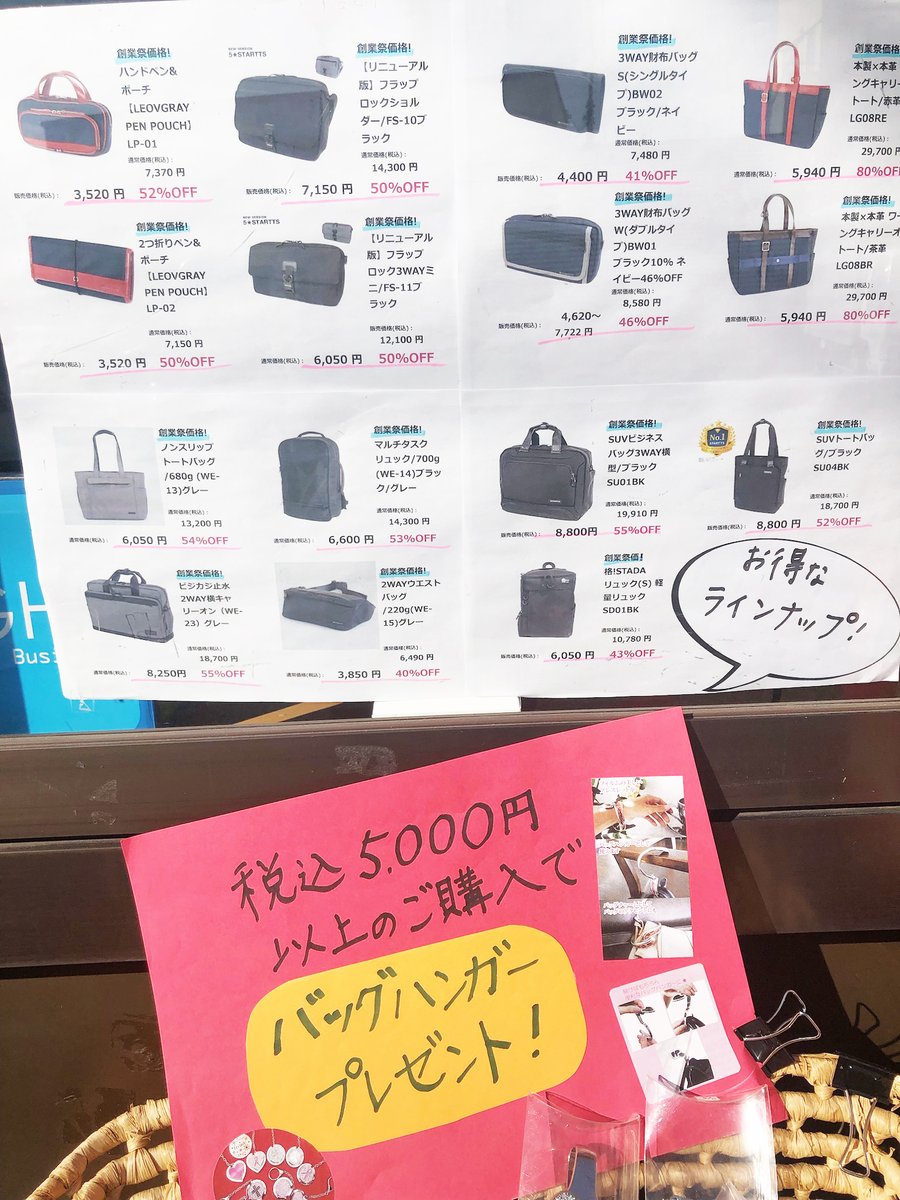 創業祭価格!
ハンドペン&
ポーチ
【LEOVGRAY
PEN POUCH】
LP-01
通常価格(税込):
7,370 円
販売価格(税込): 3,520 円 52%OFF
NEW VERSION
5★STARTTS
創業祭価格!
【リニューアル
版】フラップ
ロックショル
ダー/FS-10ブ
ラック
通常価格(税込):
14,300 円
販売価格(税込): 7,150 円 50%OFF
創業祭価格!
3WAY財布バッグ
S(シングルタイ
プ)BW02
ブラック/ネイ
ビー
通常価格(税込):
7,480 円
販売価格(税込): 4,400 円 41%OFF
創業祭価格!
本製×本革
ングキャリー
トート/赤革
LG08RE
通常価格(税込):
29,700 円
販売価格(税込): 5,940 円 80%OFF
創業祭価格!
2つ折りペン&
ポーチ
【LEOVGRAY
PEN POUCH】
LP-02
通常価格(税込):
7,150 円
販売価格(税込): 3,520 円 50%OFF
NEW VERSION
5★STARTTS
創業祭価格!
【リニューアル
版】フラップ
ロック3WAYミ
ニ/FS-11ブ
ラック
販売価格(税込):
12,100 円
通常価格(税込): 6,050 円 50%OFF
創業祭価格!
3WAY財布バッグ
W(ダブルタイ
プ)BW01
ブラック10% ネ
イビー46%OFF
通常価格(税込):
8,580 円
販売価格(税込): 4,620〜
7,722 円 46%OFF
創業祭価格!
本製×本革 ワー
ングキャリーオ
トート/茶革
LG08BR
通常価格(税込):
29,700 円
販売価格(税込): 5,940 円 80%OFF
創業祭価格!
ノンスリップ
トートバッグ
/680g (WE-
13)グレー
通常価格(税込):
13,200 円
通常価格(税込): 6,050 円 54%OFF
創業祭価格!
マルチタスク
リュック/700g
(WE-14)ブラッ
ク/グレー
通常価格(税込):
14,300 円
通常価格(税込): 6,600 円 53%OFF
創業祭価格!
SUVビジネス
バッグ3WAY横
型/ブラック
SU01BK
通常価格(税込):
19,910 円
販売価格(税込): 8,800円 55%OFF
No.1
STARTTS
創業祭価格!
SUVトートバッ
グ/ブラック
SU04BK
通常価格(税込):
18,700 円
販売価格(税込): 8,800 円 52%OFF
創業祭価格!
ビジカジ止水
2WAY横キャ
リーオン（WE-
23）グレー
通常価格(税込):
18,700 円
通常価格(税込): 8,250円 55%OFF
創業祭価格!
2WAYウエスト
バッグ
/220g(WE-
15)グレー
通常価格(税込):
6,490 円
通常価格(税込): 3,850 円 40%OFF
創業祭価!
格!STADA
リュック(S) 軽
量リュック
SD01BK
通常価格(税込):
10,780 円
販売価格(税込): 6,050 円 43%OFF
お得な
ラインナップ!
Busi
税込5,000円
以上のご購入で
バッグハンガー
プレゼント!